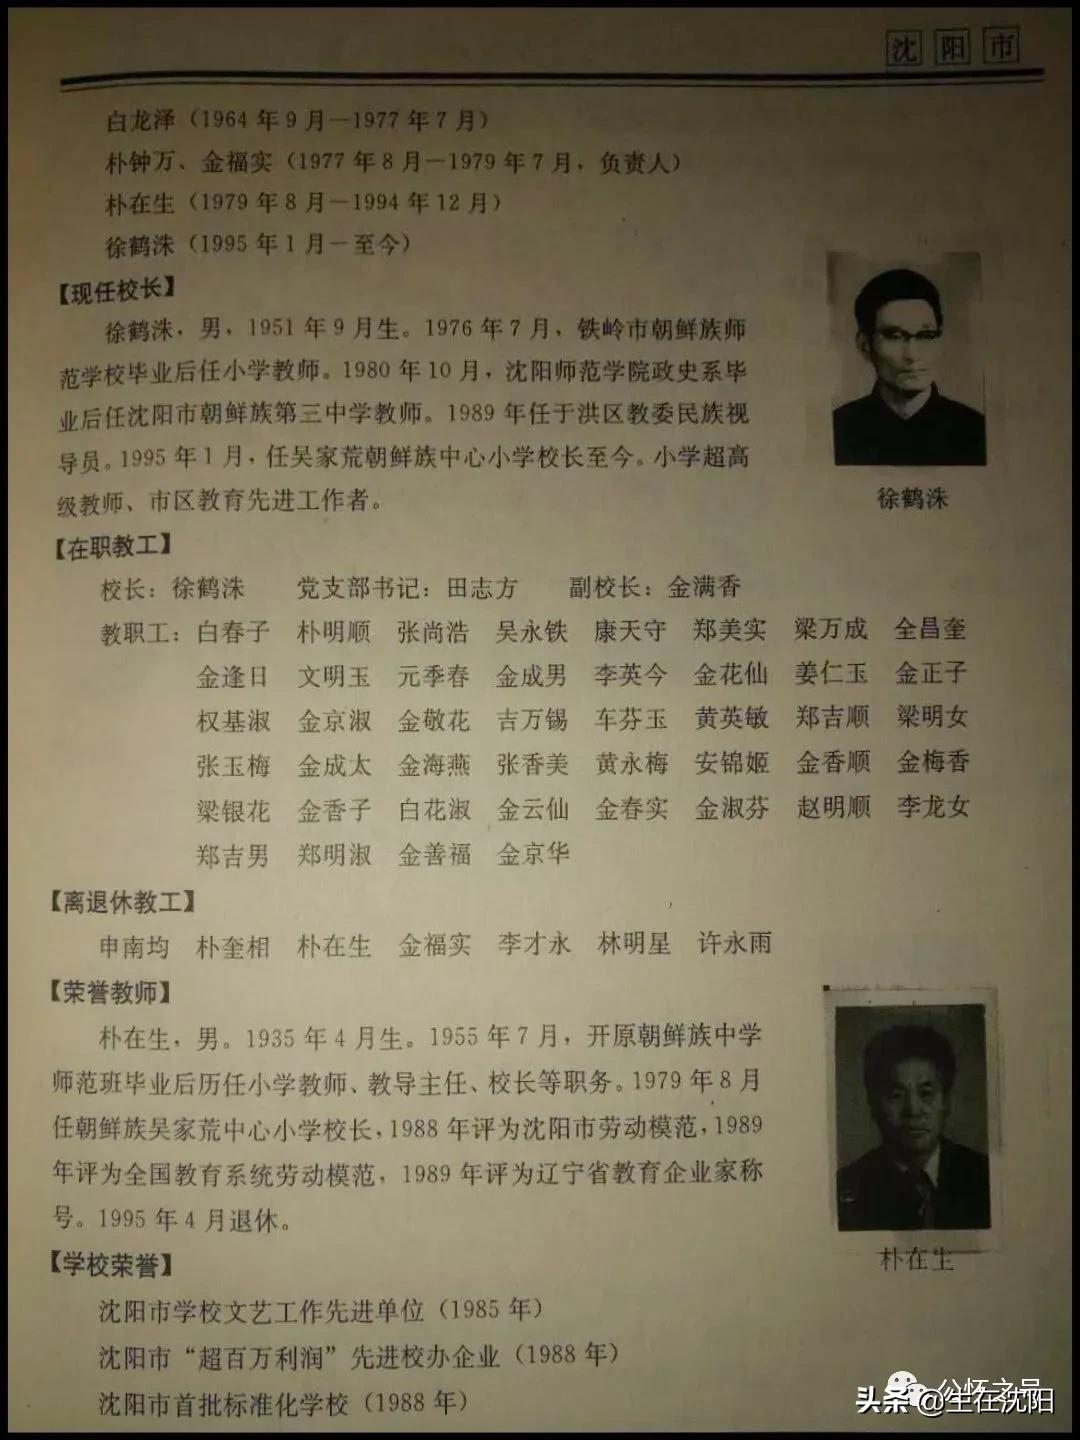 沈阳市
白龙泽（1964年9月—1977年7月）
朴钟万、金福实（1977年8月—1979年7月，负责人）
朴在生（1979年8月—1994年12月）
徐鹤洙（1995年1月－至今）
【现任校长】
徐鹤洙，男，1951年9月生。1976年7月，铁岭市朝鲜族师
范学校毕业后任小学教师。1980年10月，沈阳师范学院政史系毕
业后任沈阳市朝鲜族第三中学教师。1989年任于洪区教委民族视
导员。1995年1月，任吴家荒朝鲜族中心小学校长至今。小学超高
级教师、市区教育先进工作者。
徐鹤洙
【在职教工】
校长：徐鹤洙 党支部书记：田志方 副校长：金满香
教职工：白春子 朴明顺 张尚浩 吴永铁 康天守 郑美实 梁万成 全昌奎
金逢日 文明玉 元季春 金成男 李英今 金花仙 姜仁玉 金正子
权基淑 金京淑 金敬花 吉万锡 车芬玉 黄英敏 郑吉顺 梁明女
张玉梅 金成太 金海燕 张香美 黄永梅 安锦姬 金香顺 金梅香
梁银花 金香子 白花淑 金云仙 金春实 金淑芬 赵明顺 李龙女
郑吉男 郑明淑 金善福 金京华
【离退休教工】
申南均 朴奎相 朴在生 金福实 李才永 林明星 许永雨
【荣誉教师】
朴在生，男。1935年4月生。1955年7月，开原朝鲜族中学
师范班毕业后历任小学教师、教导主任、校长等职务。1979年8月
任朝鲜族吴家荒中心小学校长，1988年评为沈阳市劳动模范，1989
年评为全国教育系统劳动模范，1989年评为辽宁省教育企业家称
号。1995年4月退休。
朴在生
【学校荣誉】
沈阳市学校文艺工作先进单位（1985年）
沈阳市“超百万利润”先进校办企业（1988年）
沈阳市首批标准化学校（1988年）
头条@生在沈阳